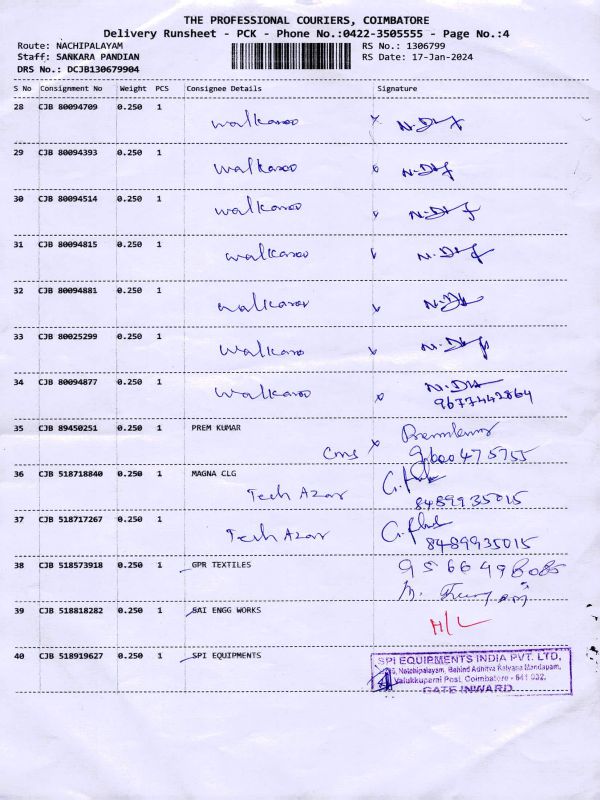 THE PROFESSIONAL COURIERS, COIMBATORE
Delivery Runsheet - PCK - Phone No.:0422-3505555 - Page No.:4
Route: NACHIPALAYAM
RS No.: 1306799
Staff: SANKARA PANDIAN
RS Date: 17-Jan-2024
DRS No.: DCJB130679904
S No Consignment No Weight PCS Consignee Details Signature
28 CJB 80094709 0.250 1 walkaroo
29 CJB 80094393 0.250 1 walkaroo
30 CJB 80094514 0.250 1 walkaroo
31 CJB 80094815 0.250 1 walkaroo
32 CJB 80094881 0.250 1 walkaroo
33 CJB 80025299 0.250 1 walkaroo
34 CJB 80094877 0.250 1 walkaroo
9677442864
35 CJB 89450251 0.250 1 PREM KUMAR Premkumar
36 CJB 518718840 0.250 1 MAGNA CLG
Tech Azar 8489935015
37 CJB 518717267 0.250 1
Tech Azar 8489935015
38 CJB 518573918 0.250 1 GPR TEXTILES
39 CJB 518818282 0.250 1 SAI ENGG WORKS H/L
40 CJB 518919627 0.250 1 SPI EQUIPMENTS
SPI EQUIPMENTS INDIA PVT. LTD.
Natchipalayam, Behind Adhitya Kalyana Mandapam,
Valukkuparni Post, Coimbatore - 641 032.
GATE INWARD